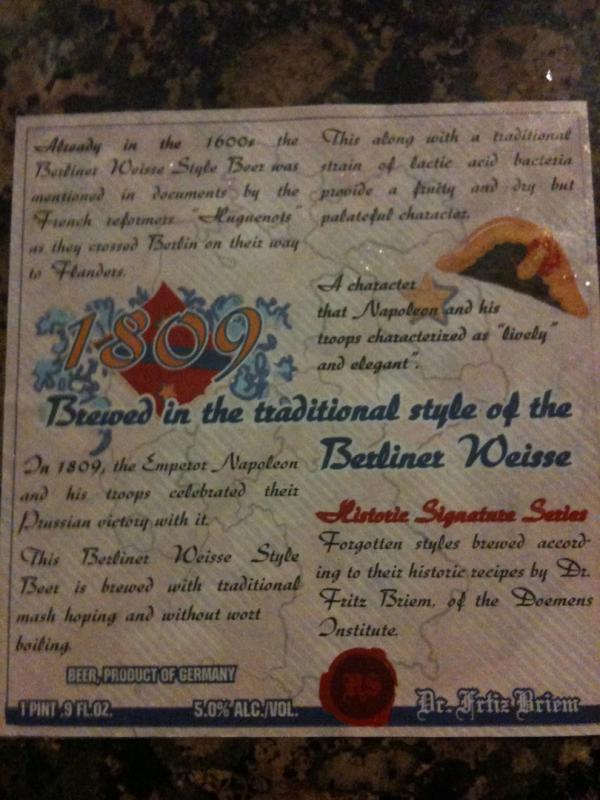 Already in the 1600s the
Berliner Weisse Style Beer was
mentioned in documents by the
French reformers "Huguenots"
as they crossed Berlin on their way
to Flanders.
This along with a traditional
strain of lactic acid bacteria
provide a fruity and dry but
palateful character.
A character
that Napoleon and his
troops characterized as "lively"
and elegant".
1809
Brewed in the traditional style of the
Berliner Weisse
In 1809, the Emperor Napoleon
and his troops celebrated their
Prussian victory with it.
This Berliner Weisse Style
Beer is brewed with traditional
mash hoping and without wort
boiling.
Historic Signature Series
Forgotten styles brewed accord-
ing to their historic recipes by Dr.
Fritz Briem, of the Doemens
Institute.
BEER, PRODUCT OF GERMANY
1 PINT .9 FL.OZ.
5.0% ALC./VOL.
HS
Dr. Frtiz Briem